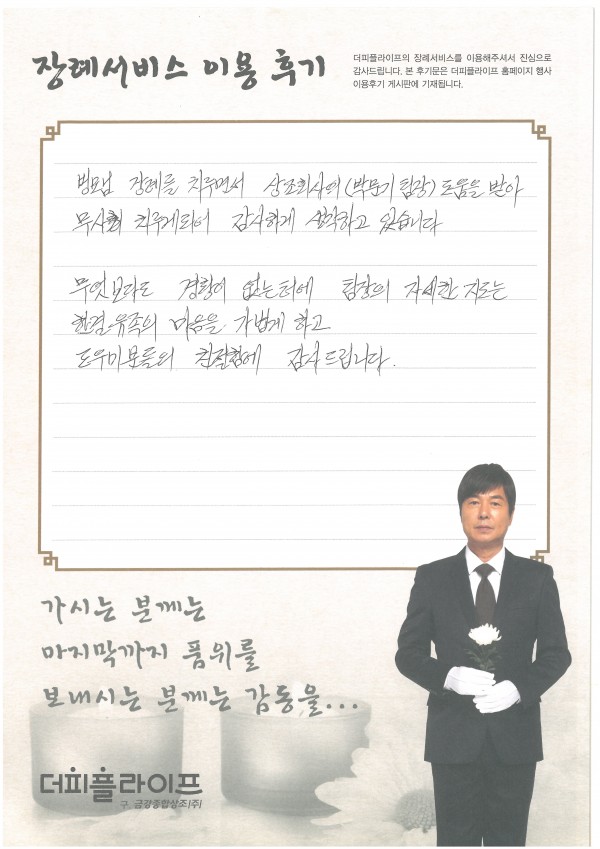 장례서비스 이용 후기
더피플라이프의 장례서비스를 이용해주셔서 진심으로
감사드립니다. 본 후기문은 더피플라이프 홈페이지 행사
이용후기 게시판에 기재됩니다.
장례를 치루면서 상조회사의 (박문기 팀장) 도움을 받아
무사히 치루게되어 감사하게 생각하고 있습니다
무엇보다도 경황이 없는터에 팀장의 자세한 지도는
한결 유족의 마음을 가볍게 하고
도우미분들의 친절함에 감사드립니다.
가시는 분께는
마지막까지 품위를
보내시는 분께는 감동을...
더피플라이프
구. 금강종합상조(주)